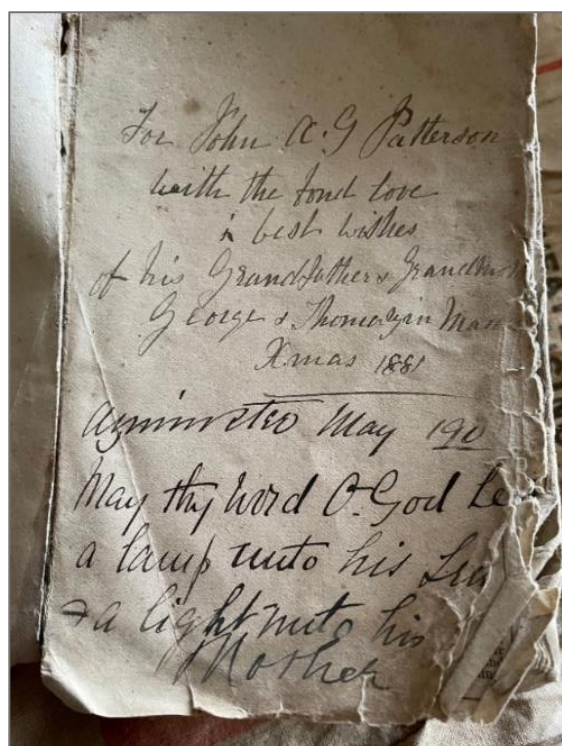 For John A. G Patterson
with the fond love
& best wishes
of his Grandfather & Grandmoth
George & Thomazin Man
Xmas 1881
May 190
May thy Word O. God be
a lamp unto his
& a light unto his
Mother